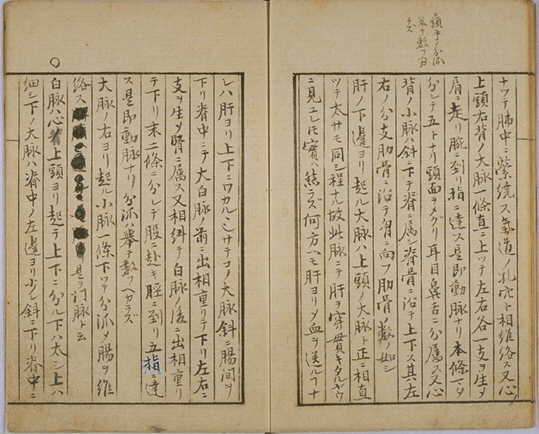 ナツテ肺中ニ縈繞ス氣道ノ孔穴ト相維絡ス又心ノ
上頭右背ノ大脉一條直ニ上ツテ左右各一支ヲ生メ
肩ニ走リ腕ニ到リ指ニ達ス是即動脉ナリ本條一タ
分レテ五トナリ頭面ヲメグリ耳目鼻舌ニ分属ス又心
背ノ小脉ハ斜下テ脊ニ属シ脊骨ニ沿テ上下ス其左
右ノ分支肋骨ニ沿テ胸ニ向フ肋骨ノ數ノ如シ
肝ノ下邊ヨリ起ル大脉ハ上頭ノ大脉ト正ニ相直
ツテ太サモ同シ程ナ故此脉ニテ肝ヲ穿貫キタルヤウ
ニ見エレ𪜈實ハ結ラズ何方ヘモ肝ヨリメ血ヲ送ルワナ
レハ肝ヨリ上下ニワカル、ミサテコノ大脉斜ニ腸間ヲ
下リ脊中ニテ大白脉ノ前ニ出相重リテ下リ左右ニ
支ヲ生メ腎ニ属ス又相糾テ白脉ノ後ニ出相重リ
テ下リ末二條ニ分レテ股ニ赴キ脛ニ到リ五指ニ達
ス是即動脉ナリ分派ハ挙テ數ヘカラス
大脉ノ右ヨリ起ル小脉一條下ツテ分派ノ腸ヲ維
絡ス
是ヲ門脉ト云
白脉ハ心ノ上頭ヨリ起テ上下ニ分ル下ハ太シ上ハ
細シ下ノ大脉ハ脊中ノ左邊ヨリ少シ斜ニ下リ脊中ニ